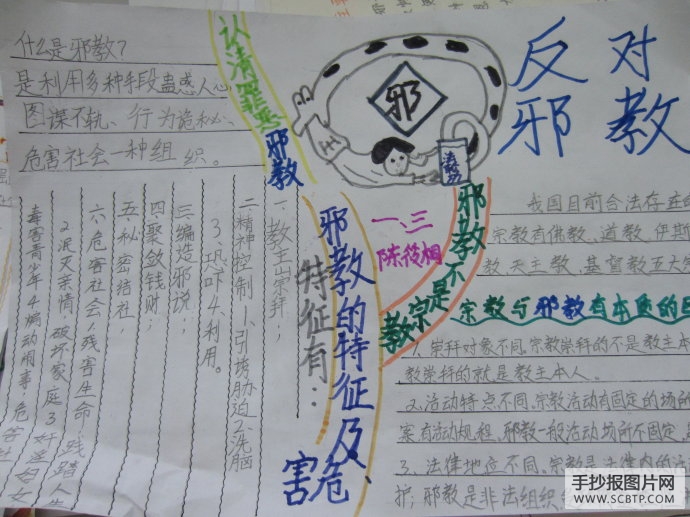 什么是邪教?
是利用多种手段蛊惑人心
图谋不轨、行为诡秘、
危害社会一种组织。
认清罪恶邪教
邪
反对
邪教
一、三
邪教不是宗教
邪教的特征及危害
特征有:
一、教主崇拜;
二精神控制1、引诱胁迫2、洗脑
3、巩吓4、利用。
三编造邪说;
四聚敛钱财
五秘密结社
六危害社会 残害生命 践踏人
2泯灭亲情 破坏家庭 3奸淫妇女
毒害青少年4煽动闹事,危害社
我国目前合法存在的
宗教有佛教、道教、伊斯
教、天主教、基督教五大
宗教与邪教有本质的
1、崇拜对象不同。宗教崇拜的不是教主本
教崇拜的就是教主本人。
2、活动特点不同、宗教活动有固定的场所
案有活动规程、邪教一般活动场所不固定,
3、法律地位不同、宗教是法律内的
护;邪教是非法组织
手抄报图片网
WWW.SCBTP.COM